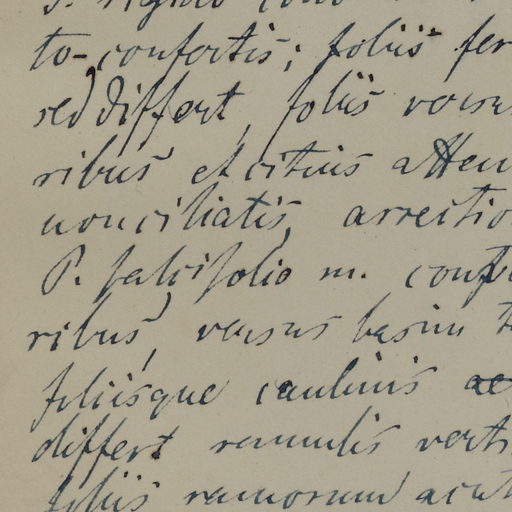 to-confertis; foliis fer
sed differt, foliis versu
ribus et citius atten
non ciliatis, arrectio
P. falcifolio m. conf
ribus, versus basin t
foliisque caulinis ae
differt ramulis verti
foliis ramorum acut